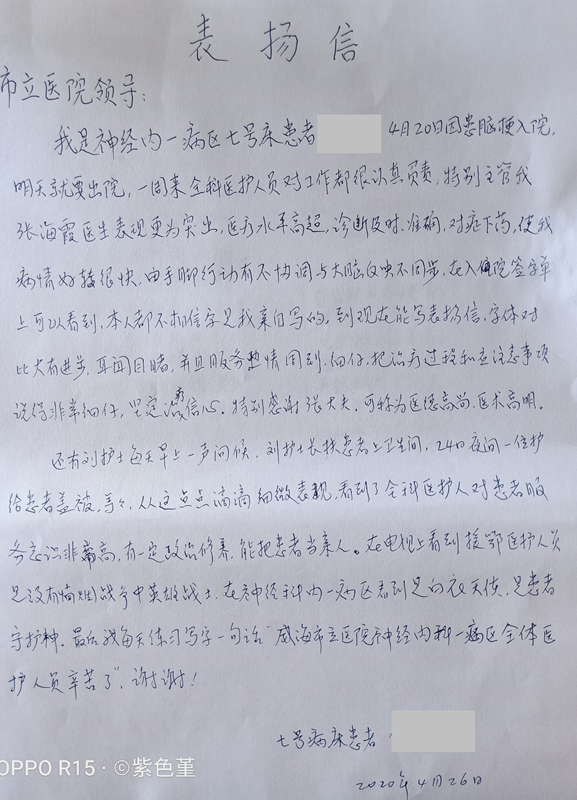 表扬信
市立医院领导：
我是神经内一病区七号床患者 4月20日因患脑梗入院，
明天就要出院，一周来全科医护人员对工作都很认真负责，特别主管我
张海霞医生表现更为突出，医疗水平高超，诊断及时、准确，对症下药，使我
病情好转很快，由手脚行动有不协调与大脑反映不同步，在入院签字单
上可以看到，本人都不相信字是我亲自写的，到现在能写表扬信，字体对
比大有进步，耳闻目睹，并且服务热情周到、细仔，把治疗过程和应注意事项
说得非常细仔，坚定治病信心。特别感谢张大夫，可称为医德高尚、医术高明。
还有刘护士每天早上一声问候，刘护士长扶患者上卫生间，24日夜间一位护
给患者盖被，等々，从这点点滴滴细微表现，看到了全科医护人对患者服
务意识非常高，有一定政治修养，能把患者当亲人。在电视上看到援鄂医护人员
是没有硝烟战争中英雄战士，在神经科内一病区看到是白衣天使，是患者
守护神。最后我每天练习写字一句话“威海市立医院神经内科一病区全体医
护人员辛苦了”，谢谢！
七号病床患者
2020年4月26日
OPPO R15 · ©紫色堇